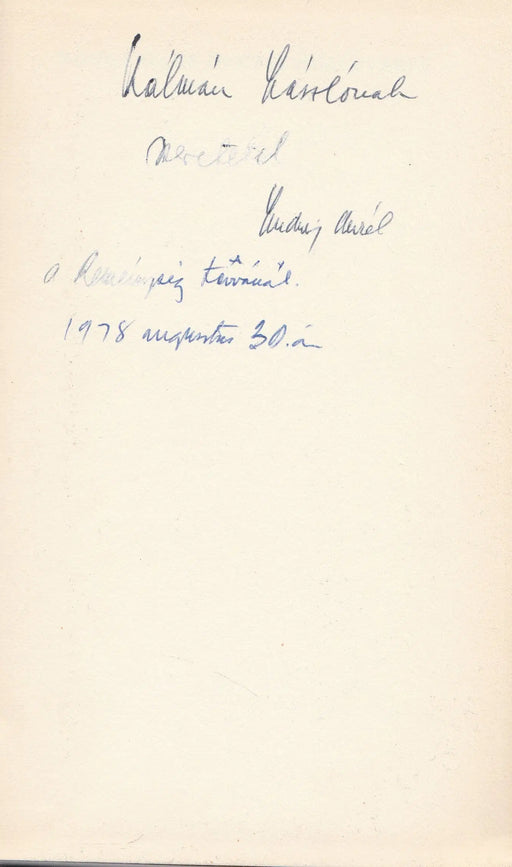 Kálmán Lászlónak
szeretettel
Endrej Aurél
a Reménység tavánál.
1978 augusztus 30.-án